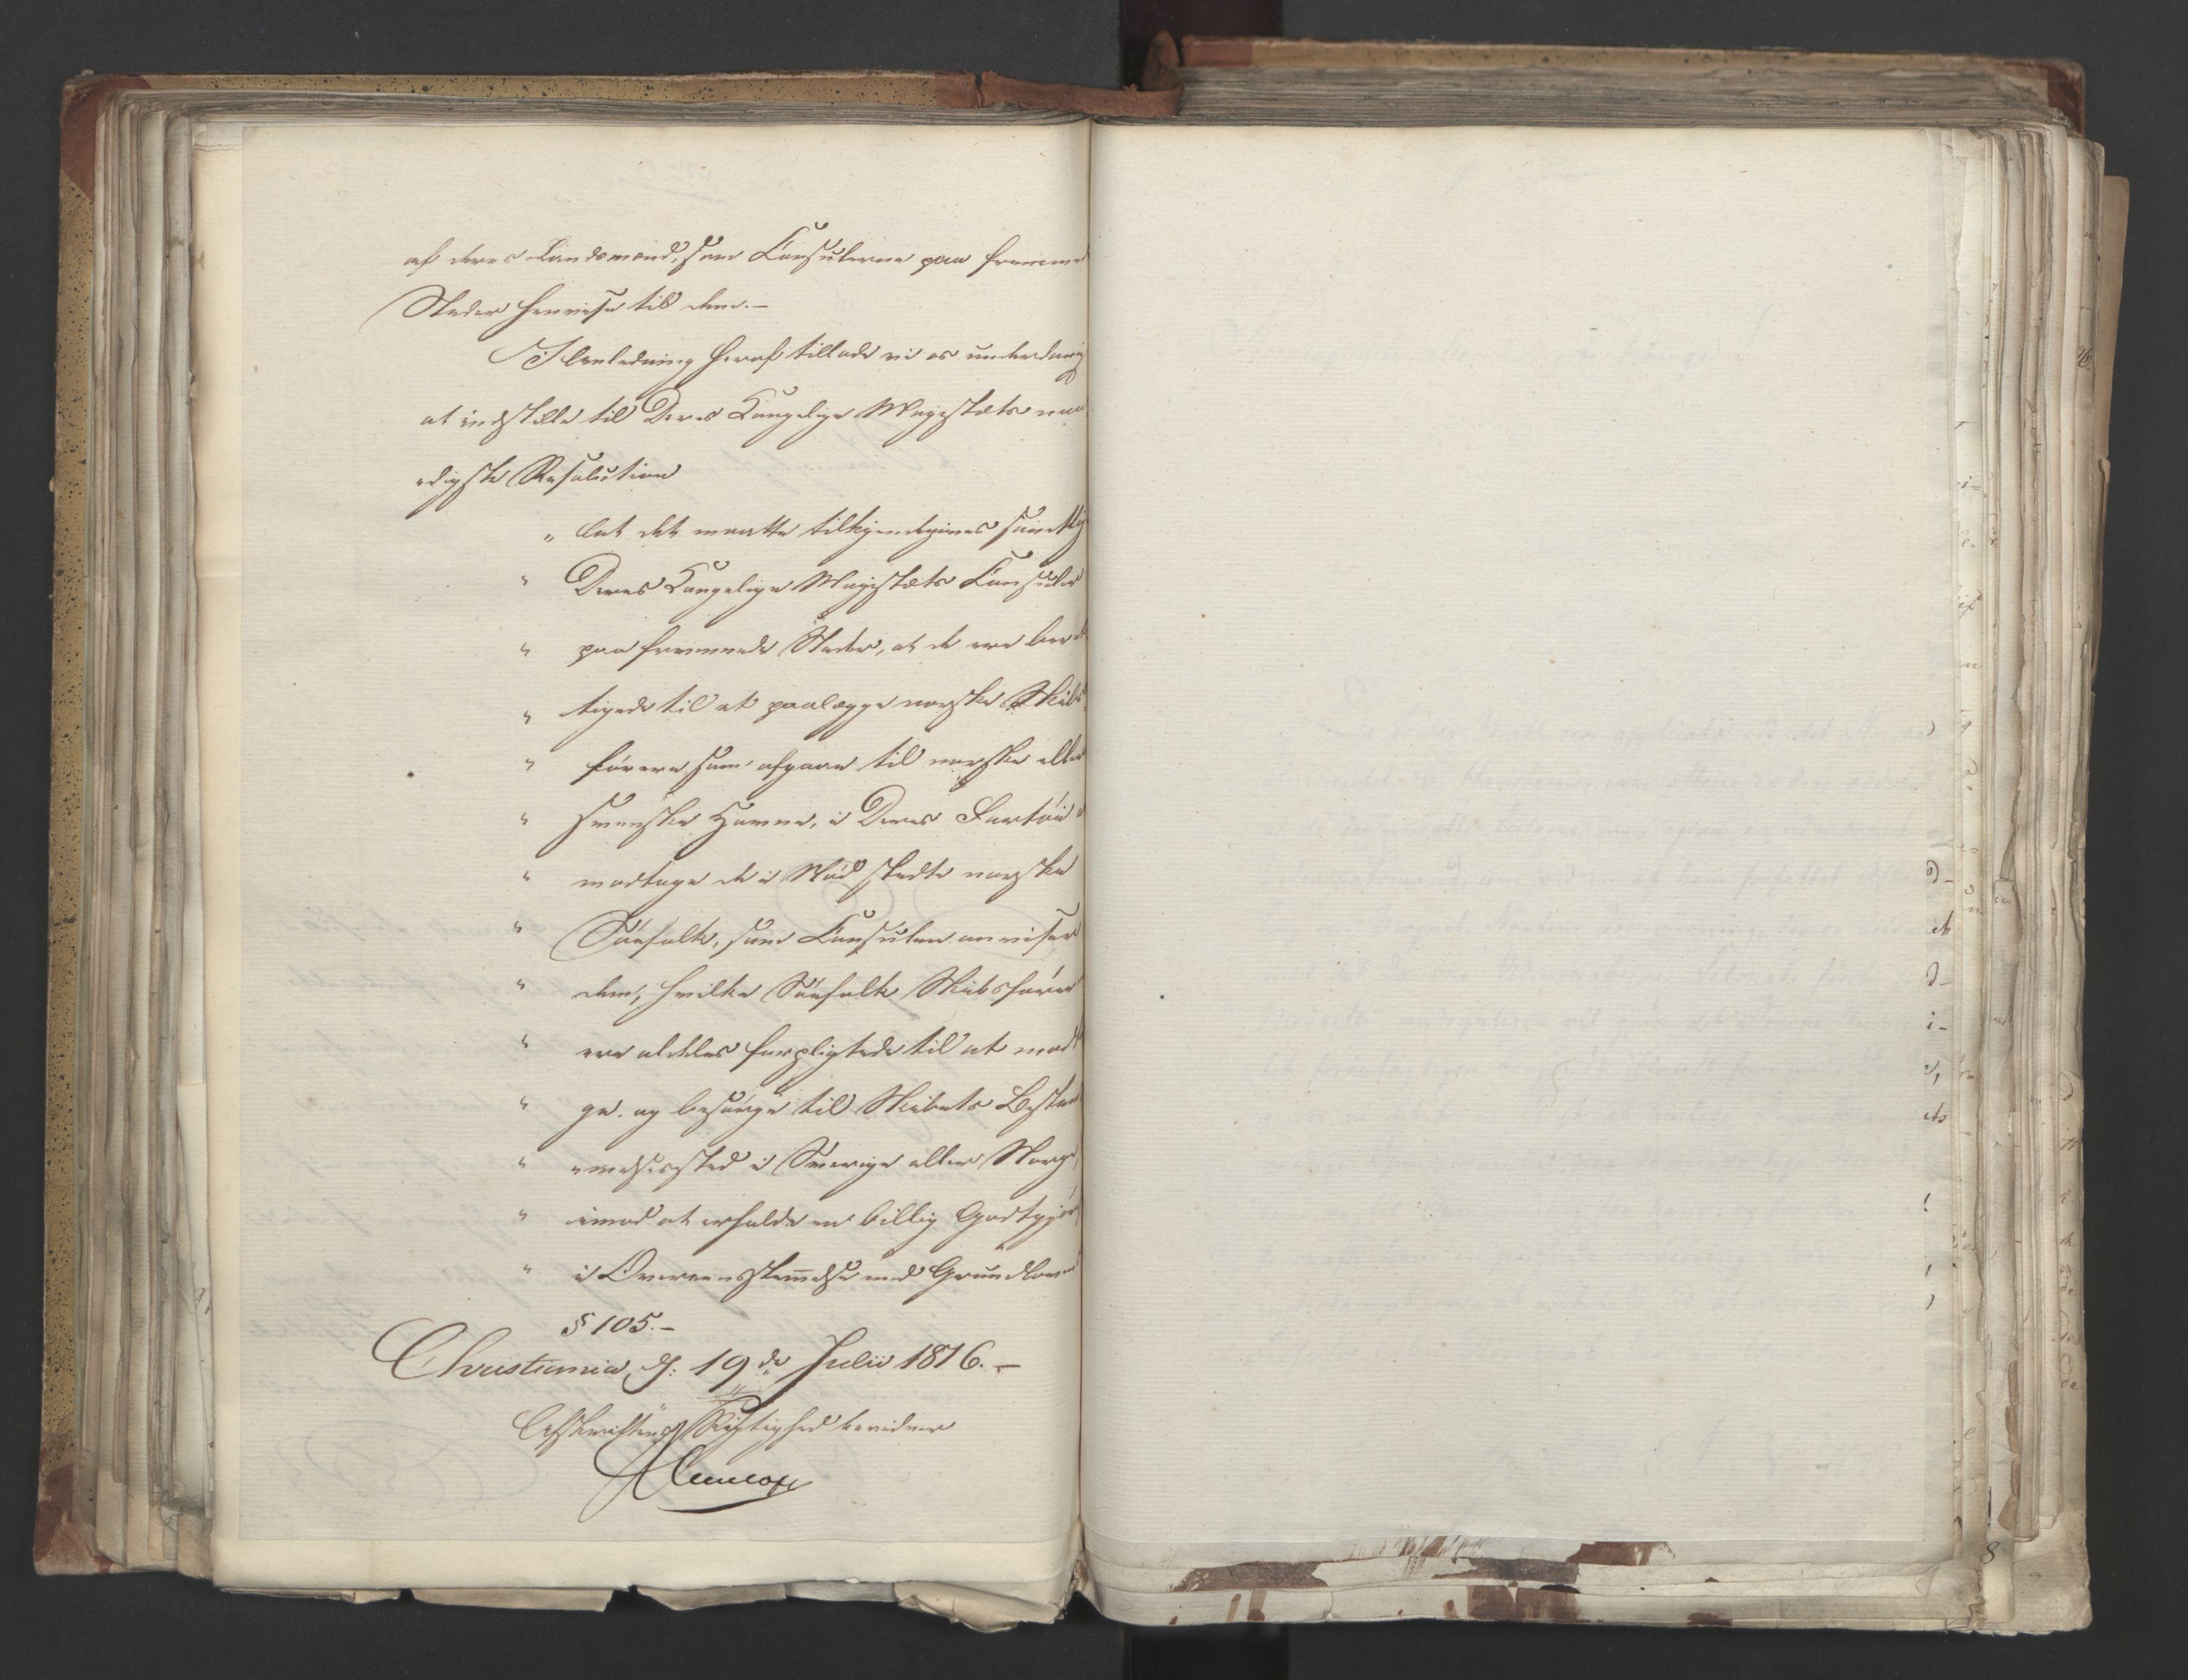 af deres Landsmænd, som Consulerne paa fremmede
Steder henvise til dem.-
I Anledning heraf tillade vi os underdanig
at indstille til Deres Kongelige Majestæts naa
digste Resolution
" At det maatte tilkjendegives samtlig
" Deres Kongelige Majestæts Consuler
" paa fremmede Steder, at de ere beret
" tigede til at paalægge norske Skibs
" förere som afgaae til norske eller
" svenske Havne, i Deres Fartöi
" modtage de i Nöd stedte norske
" Söefolk, som Consulen anviser
" dem, hvilke Söefolk Skibsförer
" ere aldeles forpligtede til at modta
" ge og besörge til Skibets Bestem
" melsessted i Sverige eller Norge,
" imod at erholde en billig Godtgjör
" i Overeensstemelse med Grundloven
§ 105.-
Christiania, d: 19de Julii 1816.-
Afskriftens Rigtighed bevidner